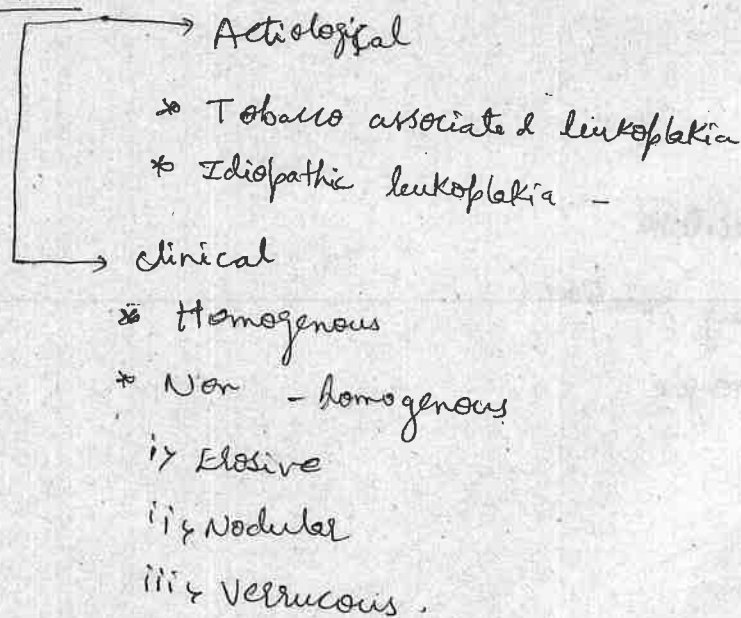 Aetiological
* Tobacco associated leukoplakia
* Idiopathic leukoplakia -
clinical
* Homogenous
* Non - homogenous
i> Erosive
ii> Nodular
iii> Verrucous.